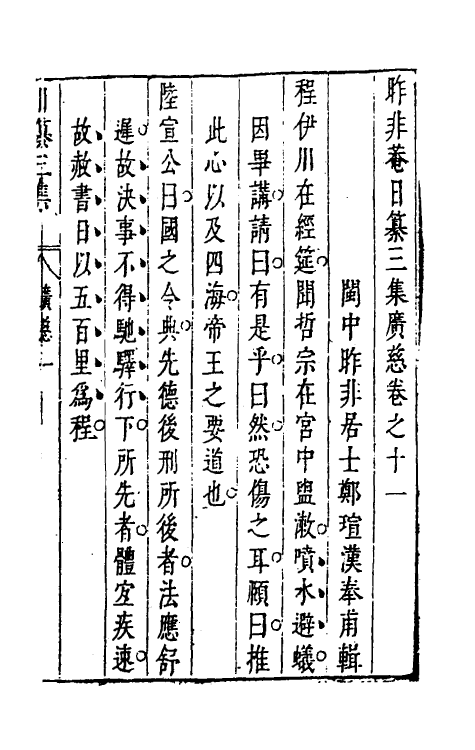 昨非菴日纂三集廣慈卷之十一
閩中昨非居士鄭瑄漢奉甫輯
程伊川在經筵聞哲宗在宮中盥漱噴水避蟻
因畢講請曰有是乎曰然恐傷之耳頤曰推
此心以及四海帝王之要道也
陸宣公曰國之令典先德後刑所後者法應舒
遲故決事不得馳驛行下所先者體宜疾速
故赦書日以五百里爲程
日纂三集
廣慈